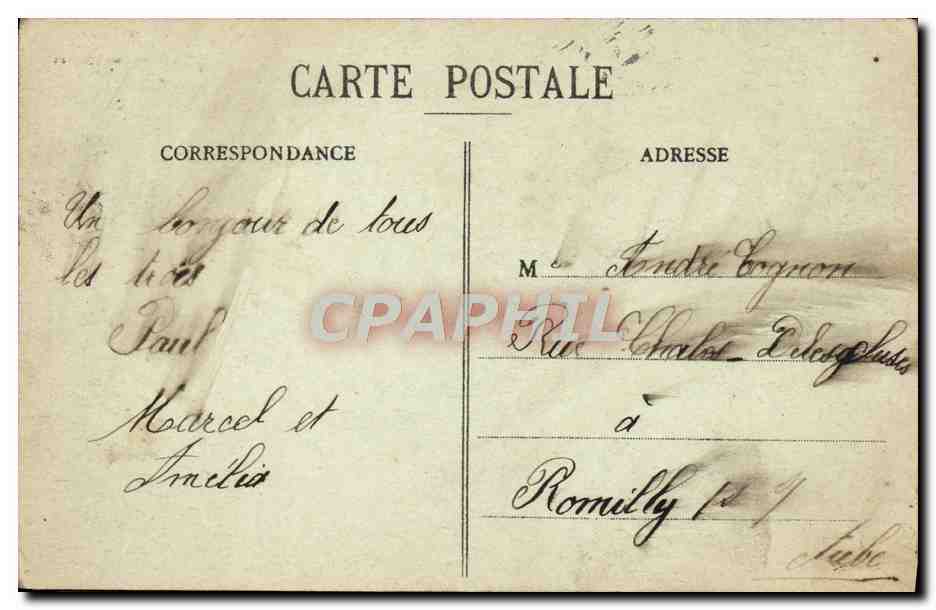 CARTE POSTALE
CORRESPONDANCE
Un bonjour de tous
les trois
Paul
Marcel et
Amélia
ADRESSE
M André Cognon
Rue
à
Romilly
Aube
CPAPHIL